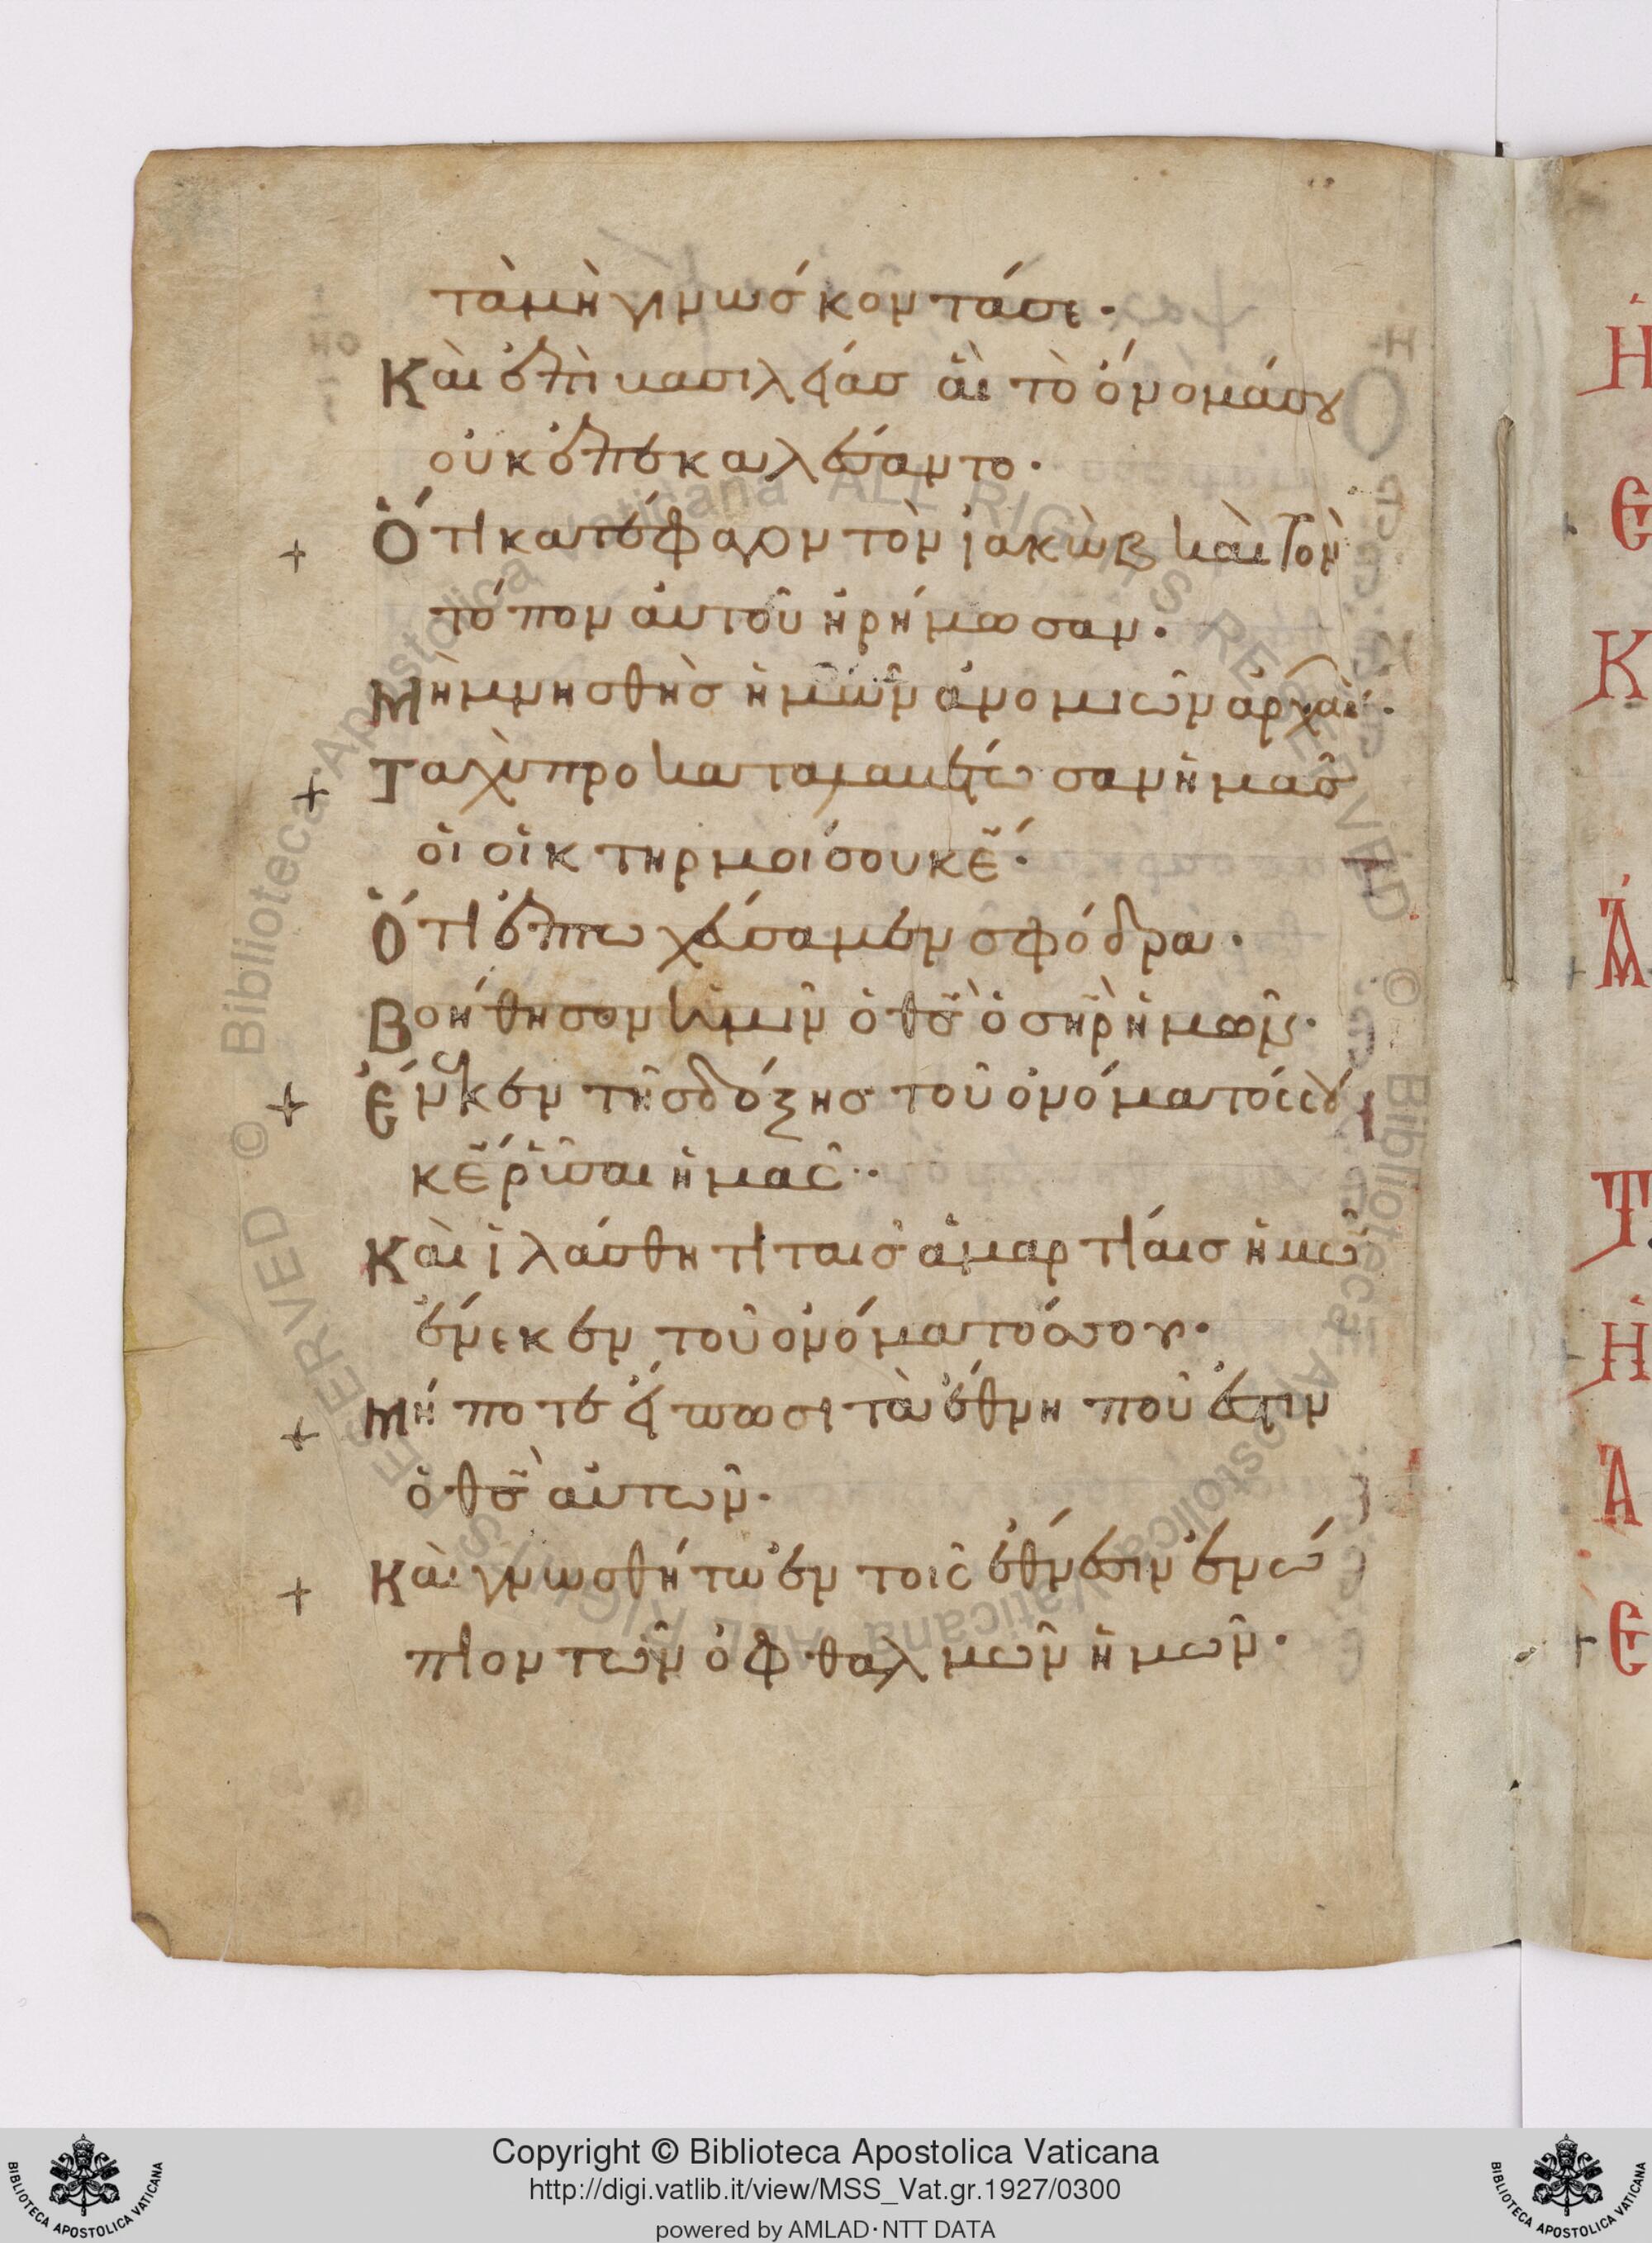 τὰ μὴ γινώσκοντά σε·
Καὶ ἐπὶ βασιλείας αἳ τὸ ὄνομά σου
οὐκ ἐπεκαλέσαντο·
Ὅτι κατέφαγον τὸν ἰακὼβ καὶ τὸν
τόπον αὐτοῦ ἠρήμωσαν·
Μὴ μνησθῆς ἡμῶν ἀνομιῶν ἀρχαί·
Ταχὺ προκαταλαβέτωσαν ἡμᾶς
οἱ οἰκτηρμοί σου κε·
Ὅτι ἐπτωχεύσαμεν σφόδρα·
Βοήθησον ἡμῖν ὁ θς ὁ σηρ ἡμῶν·
Ἕνεκεν τῆς δόξης τοῦ ὀνόματός σου
κε ῥῦσαι ἡμᾶς·
Καὶ ἱλάσθητι ταῖς ἁμαρτίαις ἡμῶ
ἕνεκεν τοῦ ὀνόματός σου·
Μή ποτε εἴπωσι τὰ ἔθνη ποῦ ἐστιν
ὁ θς αὐτῶν·
Καὶ γνωσθήτω ἐν τοῖς ἔθνεσιν ἐνώ
πιον τῶν ὀφθαλμῶν ἡμῶν·
Copyright © Biblioteca Apostolica Vaticana
http://digi.vatlib.it/view/MSS_Vat.gr.1927/0300
powered by AMLAD·NTT DATA
BIBLIOTECA APOSTOLICA VATICANA
BIBLIOTECA APOSTOLICA VATICANA